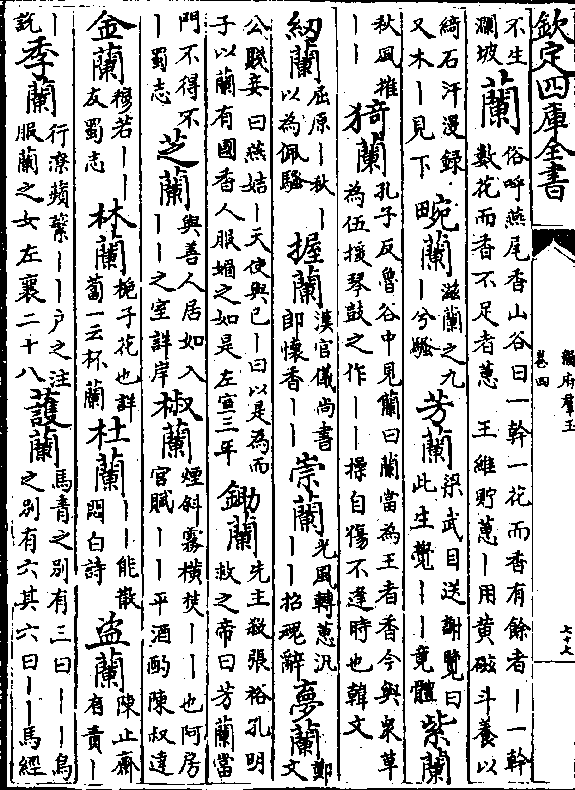 欽定四庫全書
韻府羣玉
卷四
七十七
不生
瀾坡
蘭
俗呼燕尾香山谷曰一幹一花而香有餘者——一幹
數花而香不足者蕙 王維貯蕙—用黄磁斗養以
綺石汗漫録
又木—見下
畹蘭
滋蘭之九
田—兮騷
芳蘭
梁武目送謝覽曰
此生覺——竟體
紫蘭
秋風推
——
猗蘭
孔子反魯谷中見蘭曰蘭當為王者香今與衆草
為伍援琴鼓之作——操自傷不逢時也韓文
紉蘭
屈原—秋—
以為佩騷
握蘭
漢官儀尚書
郎懷香——
崇蘭
光風轉蕙汎
——招魂辭
夢蘭
鄭
文
公賤妾曰燕姞—天使與已—曰以是為而
子以蘭有國香人服媚之如是左宣三年
鋤蘭
先主殺張裕孔明
救之帝曰芳蘭當
門不得不
—蜀志
芝蘭
與善人居如入
——之室詳岸
椒蘭
煙斜霧横焚——也阿房
宫賦 ——平酒酌陳叔達
金蘭
穆若——
友蜀志
林蘭
梔子花也詳
蔔一云杯蘭
杜蘭
——能散
悶白詩
盗蘭
陳止齋
有責—
—
説
季蘭
行潦蘋蘩——户之注
服蘭之女左襄二十八
護蘭
馬青之别有三曰———烏
之别有六其六曰——馬經